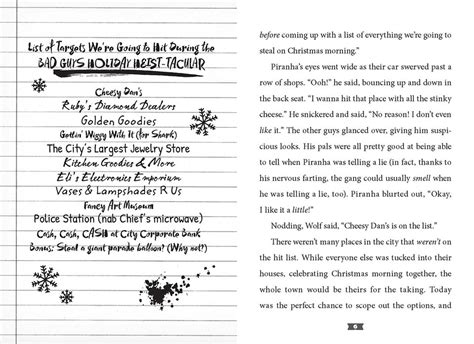 List of Targets We're Going to Hit During the
BAD GUYS HOLIDAY HEIST-TACULAR
Cheesy Dan's
Ruby's Diamond Dealers
Golden Goodies
Gettin' Wiggy With It (for Shark)
The City's Largest Jewelry Store
Kitchen Goodies & More
Eli's Electronics Emporium
Vases & Lampshades R Us
Fancy Art Museum
Police Station (nab Chief's microwave)
Cash, Cash, CASH at City Corporate Bank
Bonus: Steal a giant parade balloon? (Why not?)
before coming up with a list of everything we're going to
steal on Christmas morning."
Piranha's eyes went wide as their car swerved past a
row of shops. "Ooh!" he said, bouncing up and down in
the back seat. "I wanna hit that place with all the stinky
cheese." He snickered and said, "No reason! I don't even
like it." The other guys glanced over, giving him suspi-
cious looks. His pals were all pretty good at being able
to tell when Piranha was telling a lie (in fact, thanks to
his nervous farting, the gang could usually smell when
he was telling a lie, too). Piranha blurted out, "Okay,
I like it a little!"
Nodding, Wolf said, "Cheesy Dan's is on the list."
There weren't many places in the city that weren't on
the hit list. While everyone else was tucked into their
houses, celebrating Christmas morning together, the
whole town would be theirs for the taking. Today
was the perfect chance to scope out the options, and
6